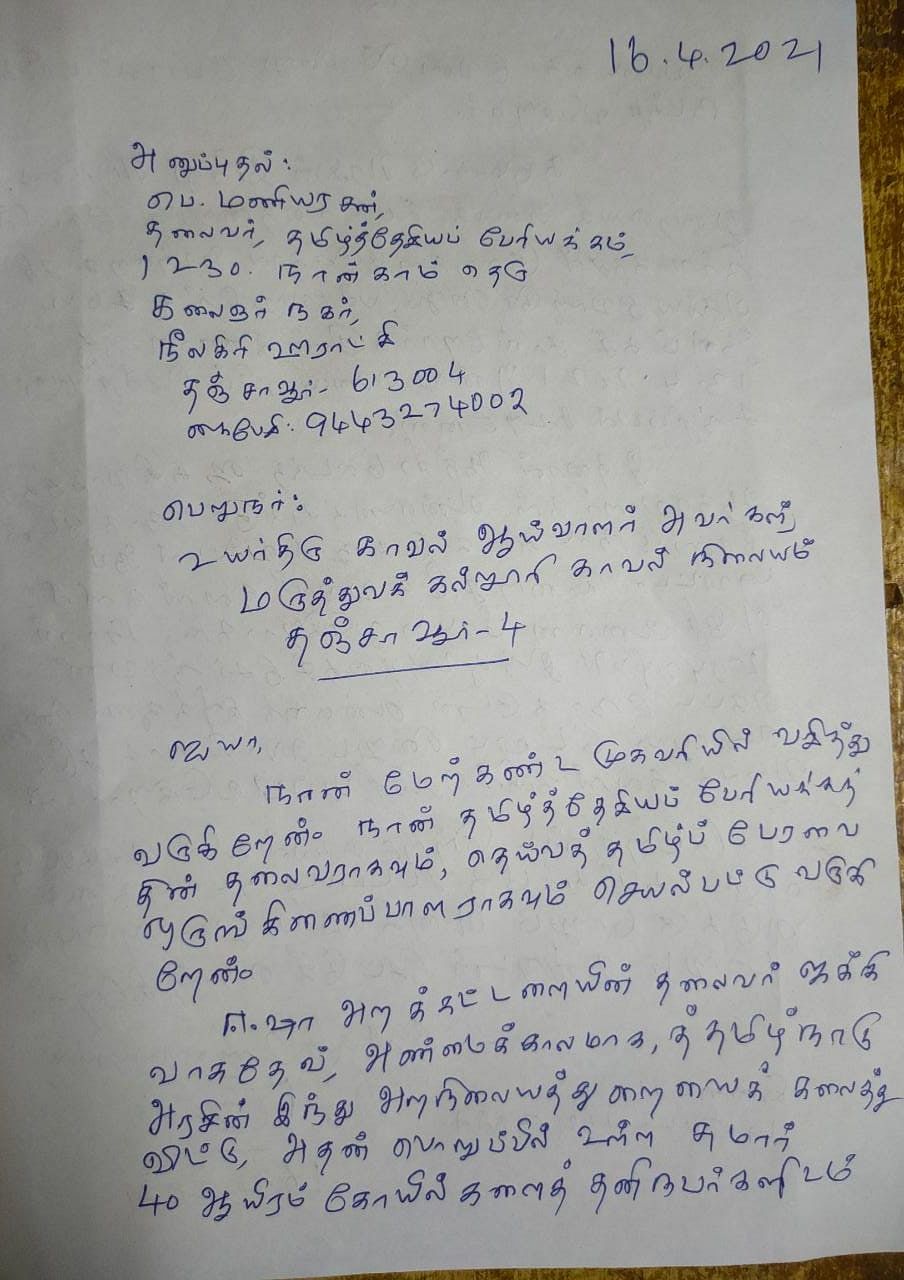 16.4.2021
அனுப்புதல்:
பெ. மணியரசன்,
தலைவர், தமிழ்த்தேசியப் பேரியக்கம்,
1230. நான்காம் தெரு
கலைஞர் நகர்,
நீலகிரி ஊராட்சி
தஞ்சாவூர் - 613004
கைபேசி: 9443274002
பெறுநர்:
உயர்திரு காவல் ஆய்வாளர் அவர்கள்,
மருத்துவக் கல்லூரி காவல் நிலையம்
தஞ்சாவூர் - 4
ஐயா,
நான் மேற்கண்ட முகவரியில் வசித்து
வருகிறேன். நான் தமிழ்த்தேசியப் பேரியக்கத்
தின் தலைவராகவும், தெய்வத் தமிழ்ப் பேரவை
ஒருங்கிணைப்பாளராகவும் செயல்பட்டு வருகி
றேன்.
ஈஷா அறக்கட்டளையின் தலைவர் ஜக்கி
வாசுதேவ், அண்மைக்காலமாக, தமிழ்நாடு
அரசின் இந்து அறநிலையத்துறையைக் கலைத்து
விட்டு, அதன் பொறுப்பில் உள்ள சுமார்
40 ஆயிரம் கோயில்களைத் தனிநபர்களிடம்